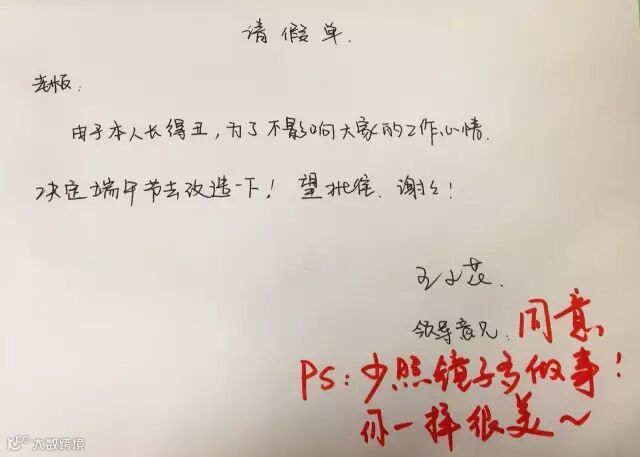 请假单.
老板：
由于本人长得丑，为了不影响大家的工作心情.
决定端午节去改造一下！望批准.谢谢！
王小花.
领导意见：同意
PS：少照镜子多做事！
你一样很美～
大数跨境